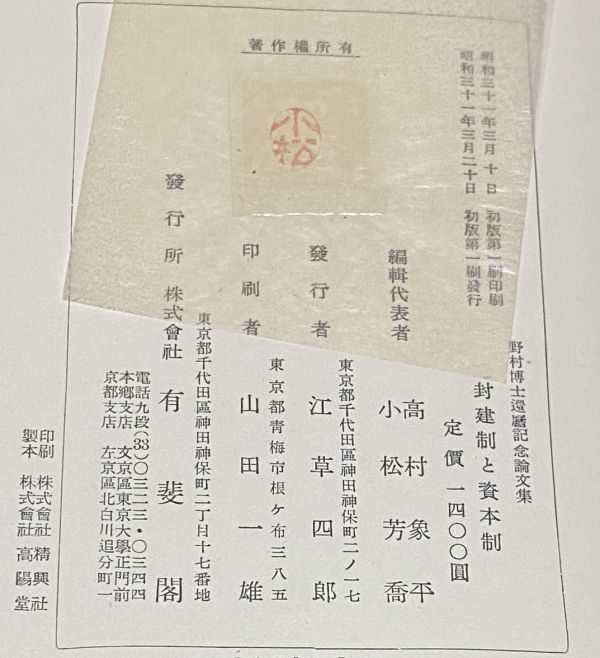 昭和三十一年三月 十 日　初版第一刷印刷
昭和三十一年三月二十日　初版第一刷發行
野村博士還曆記念論文集
封建制と資本制
定價 一四〇〇圓
著作權所有
小松
編輯代表者
高村象平
小松芳喬
東京都千代田區神田神保町二ノ一七
發行者 江草四郎
東京都青梅市根ケ布三八五
印刷者 山田一雄
東京都千代田區神田神保町二丁目十七番地
發行所 株式會社 有斐閣
電話九段(33)〇三二三・〇三四四
本鄉支店 文京區東京大學正門前
京都支店 左京區北白川追分町一
印刷 株式會社 精興社
製本 株式會社 高陽堂